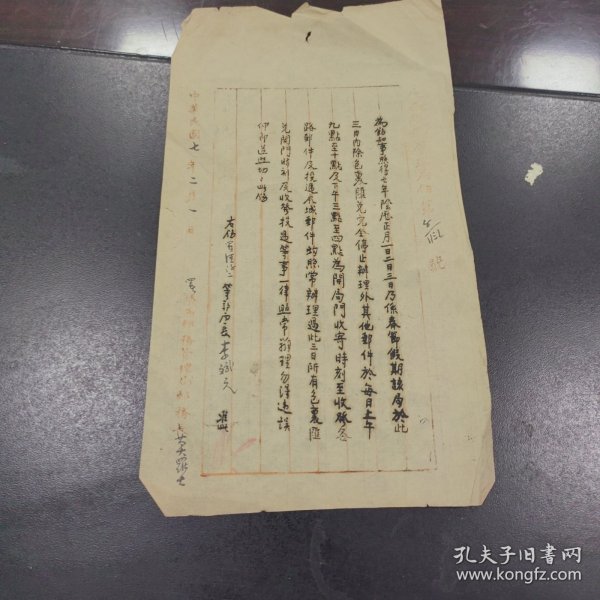 號
為飭知事照得七年陰历正月一日二日三日乃係春節假期該局於此
三日內除包裹匯兌完全停止辦理外其他郵件於每日上午
九點至十點及下午三點至四點為開局門收寄時刻至收發各
路郵件及投遞本城郵件均照常辦理過此三日所有包裹匯
兌開門時刻及收發投遞等事一律照常辦理勿得违误
仰即遵照切切此飭
右飭 等郵局長李 准此
中華民國七年二月一日
郵務 黃 士
孔夫子旧书网
www.kongfz.com